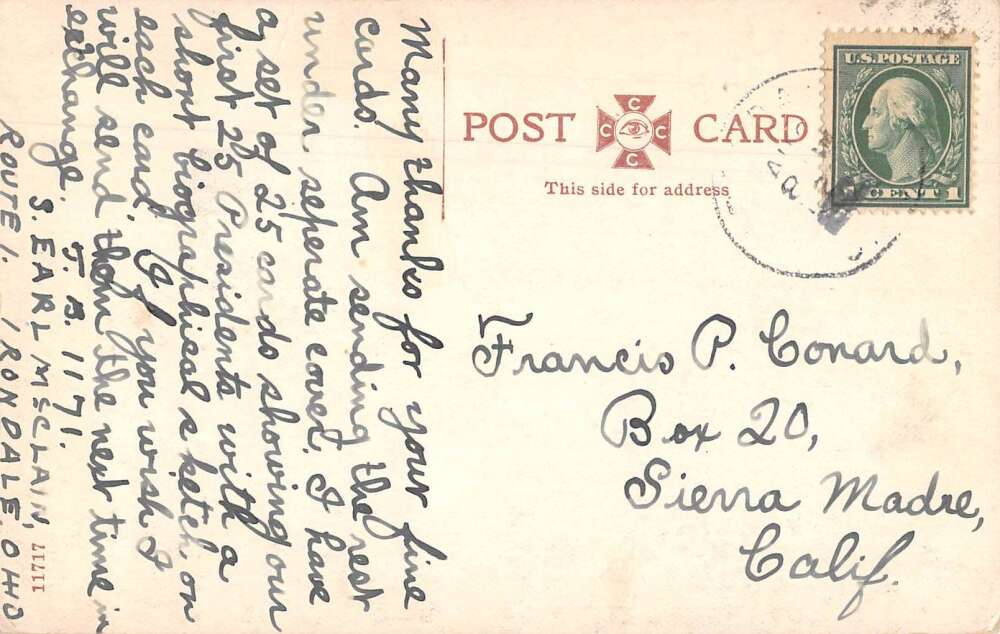 Many thanks for your fine
cards. Am sending the rest
under seperate cover. I have
a set of 25 cards showing our
first 25 Presidents with a
short biographical sketch on
each card. If you wish I
will send them the next time in
exchange. J.B. 1171.
S. EARL McCLAIN,
ROUTE 1. IRONDALE. OHIO
11717
POST CARD
C C C C
This side for address
U.S. POSTAGE
1 CENT 1
Francis P. Conard,
Box 20,
Sierra Madre,
Calif.